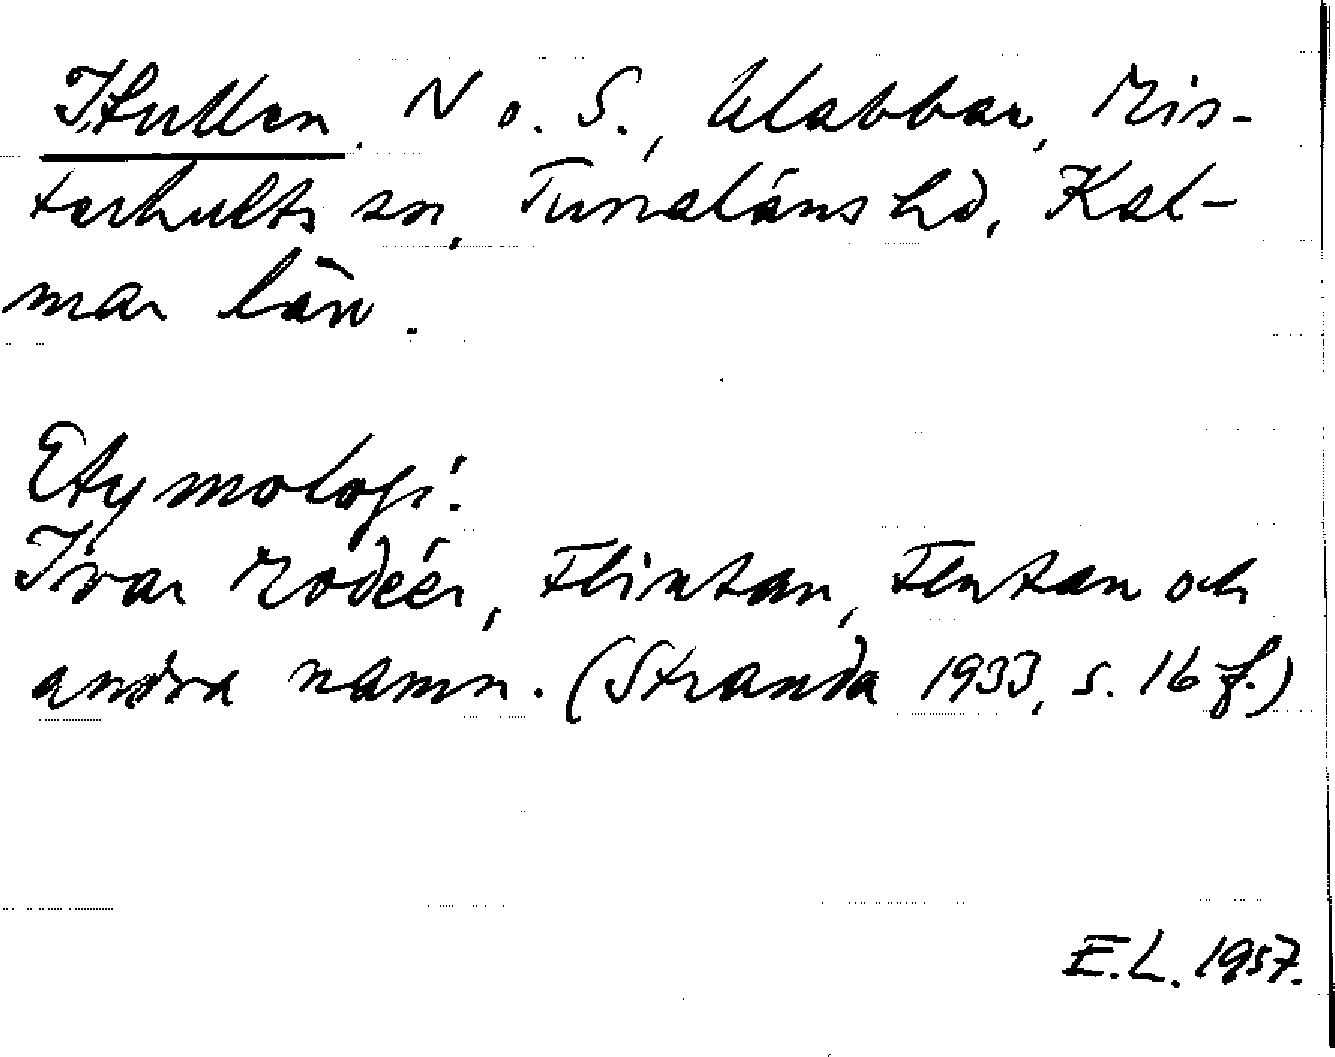 N o. S., klabbar, Mis-
terhults sn, Tunaläns hd, Kal-
mar län.
Etymologi:
Ivar Modéer, Flintan, Flutan och
andra namn. (Stranda 1933, s. 16 f.)
E.L. 1957.